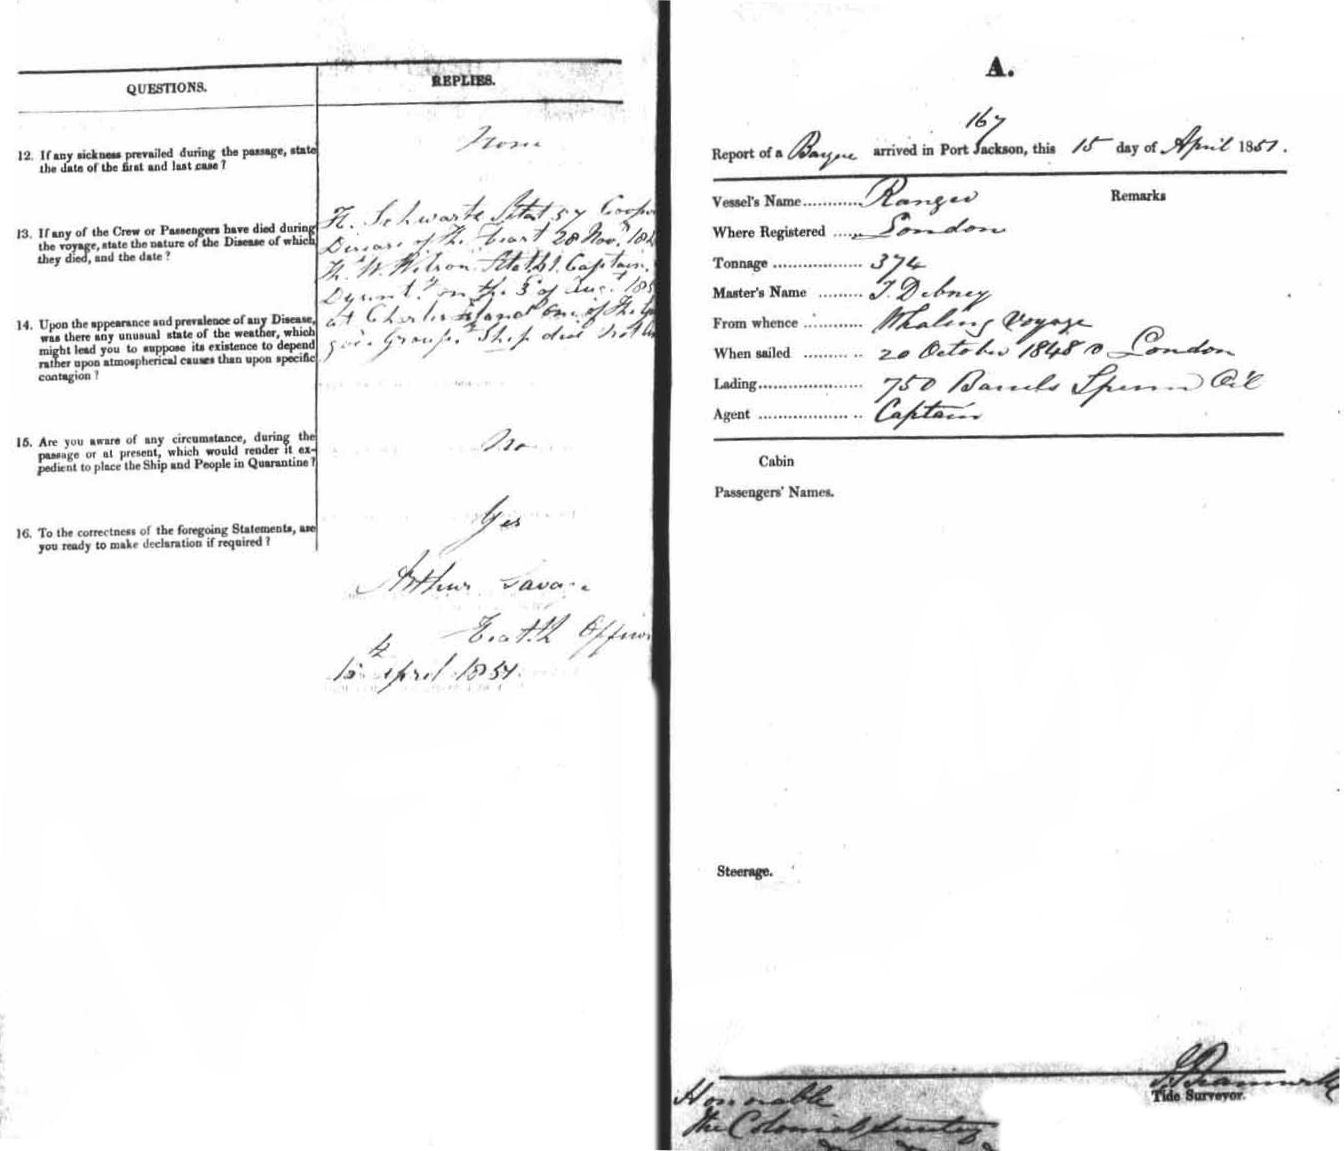 QUESTIONS.
REPLIES.
12. If any sickness prevailed during the passage, state
the date of the first and last case ?
None
13. If any of the Crew or Passengers have died during
the voyage, state the nature of the Disease of which
they died, and the date ?
H. Schwartz Ætat 57 Cooper
Disease of the heart 28 Nov.
W. Wilson Captain.
on the 3d of Aug.t
at Charles Island one of the
Groups. Ship did not
14. Upon the appearance and prevalence of any Disease,
was there any unusual state of the weather, which
might lead you to suppose its existence to depend
rather upon atmospherical causes than upon specific
contagion ?
15. Are you aware of any circumstance, during the
passage or at present, which would render it ex-
pedient to place the Ship and People in Quarantine ?
No
16. To the correctness of the foregoing Statements, are
you ready to make declaration if required ?
Yes
Arthur Savage
Health Officer
15th April 1851.
A.
167
Report of a Barque arrived in Port Jackson, this 15 day of April 1851.
Vessel's Name............ Ranger Remarks
Where Registered ...... London
Tonnage .................. 374
Master's Name ......... T. Debney
From whence ............ Whaling Voyage
When sailed ......... .. 20 October 1848 London
Lading..................... 750 Barrels Sperm Oil
Agent ................. .. Captain
Cabin
Passengers' Names.
Steerage.
Tide Surveyor.
Honorable
The Colonial Secretary